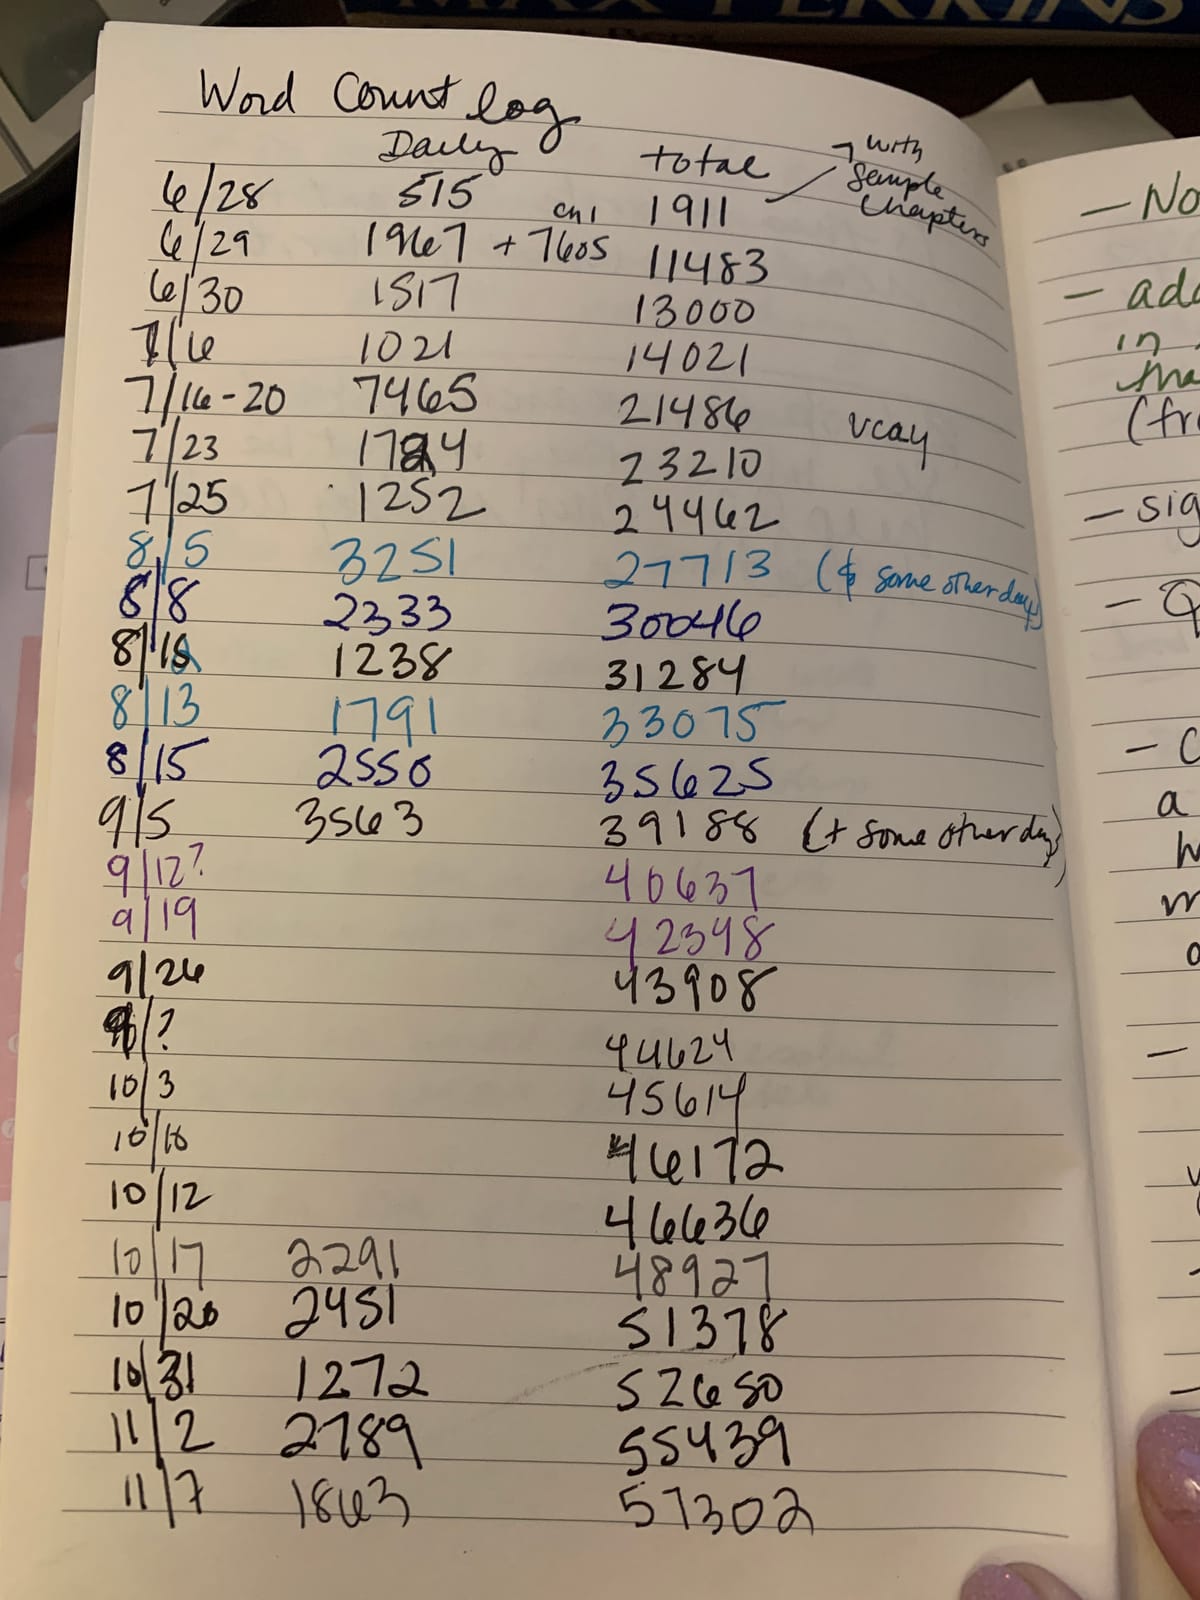 MAX PERKINS
Word Count log
Daily total → with sample chapters
6/28 515 1911
6/29 1967 + ch 1 7605 11483
6/30 1517 13000
7/6 1021 14021
7/16-20 7465 21486 vcay
7/23 1724 23210
7/25 1252 24462
8/5 3251 27713 (& some other days)
8/8 2333 30046
8/12 1238 31284
8/13 1791 33075
8/15 2550 35625
9/5 3563 39188 (+ some other days)
9/12? 40637
9/19 42398
9/26 43908
9/? 44624
10/3 45614
10/10 46172
10/12 46636
10/17 2291 48927
10/20 2451 51378
10/31 1272 52650
11/2 2789 55439
11/7 1863 57302
— No
— add
in
(fr
— sig
— Q
— C
a